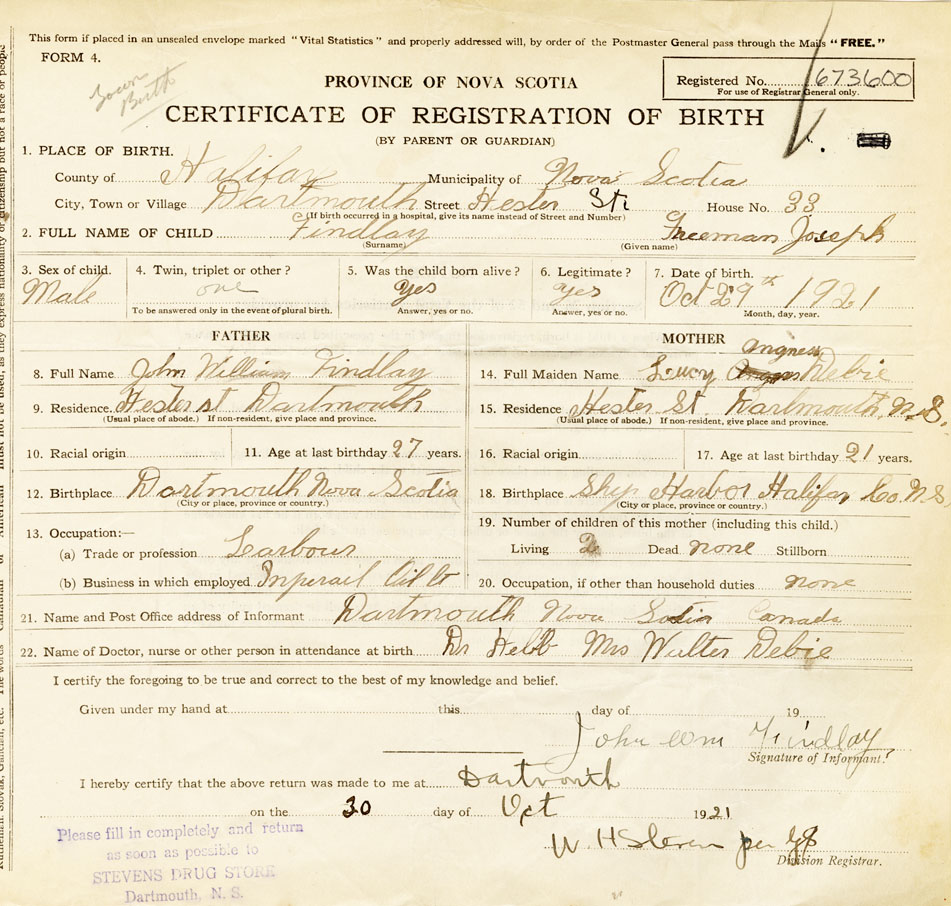 This form if placed in an unsealed envelope marked "Vital Statistics" and properly addressed will, by order of the Postmaster General pass through the Mails "FREE."
FORM 4.
Birth
PROVINCE OF NOVA SCOTIA
Registered No. 673600
For use of Registrar General only.
CERTIFICATE OF REGISTRATION OF BIRTH
(BY PARENT OR GUARDIAN)
1. PLACE OF BIRTH.
County of Halifax Municipality of Nova Scotia
City, Town or Village Dartmouth Street Hester St. House No. 33
(If birth occurred in a hospital, give its name instead of Street and Number)
2. FULL NAME OF CHILD Findlay Freeman Joseph
(Surname) (Given name)
3. Sex of child. 4. Twin, triplet or other? 5. Was the child born alive? 6. Legitimate? 7. Date of birth.
Male one yes yes Oct 29th 1921
To be answered only in the event of plural birth. Answer, yes or no. Answer, yes or no. Month, day, year.
FATHER
8. Full Name John William Findlay
9. Residence. Hester st Dartmouth
(Usual place of abode.) If non-resident, give place and province.
10. Racial origin 11. Age at last birthday 27 years.
12. Birthplace Dartmouth Nova Scotia
(City or place, province or country.)
13. Occupation:—
(a) Trade or profession Larbour
(b) Business in which employed Imperail Oil
MOTHER
14. Full Maiden Name Lucy Angness Debie
15. Residence Hester St. Dartmouth, N.S.
(Usual place of abode.) If non-resident, give place and province.
16. Racial origin 17. Age at last birthday 21 years.
18. Birthplace Ship Harbor Halifax Co. N.S
(City or place, province or country.)
19. Number of children of this mother (including this child.)
Living 2 Dead none Stillborn
20. Occupation, if other than household duties none
21. Name and Post Office address of Informant Dartmouth Nova Scotia Canada
22. Name of Doctor, nurse or other person in attendance at birth Dr Hebb Mrs Walter Debie
I certify the foregoing to be true and correct to the best of my knowledge and belief.
Given under my hand at this day of 19
John Wm Findlay
Signature of Informant.
I hereby certify that the above return was made to me at Dartmouth
on the 30 day of Oct 1921
W. H Steven per
Division Registrar.
Please fill in completely and return
as soon as possible to
STEVENS DRUG STORE
Dartmouth, N. S.